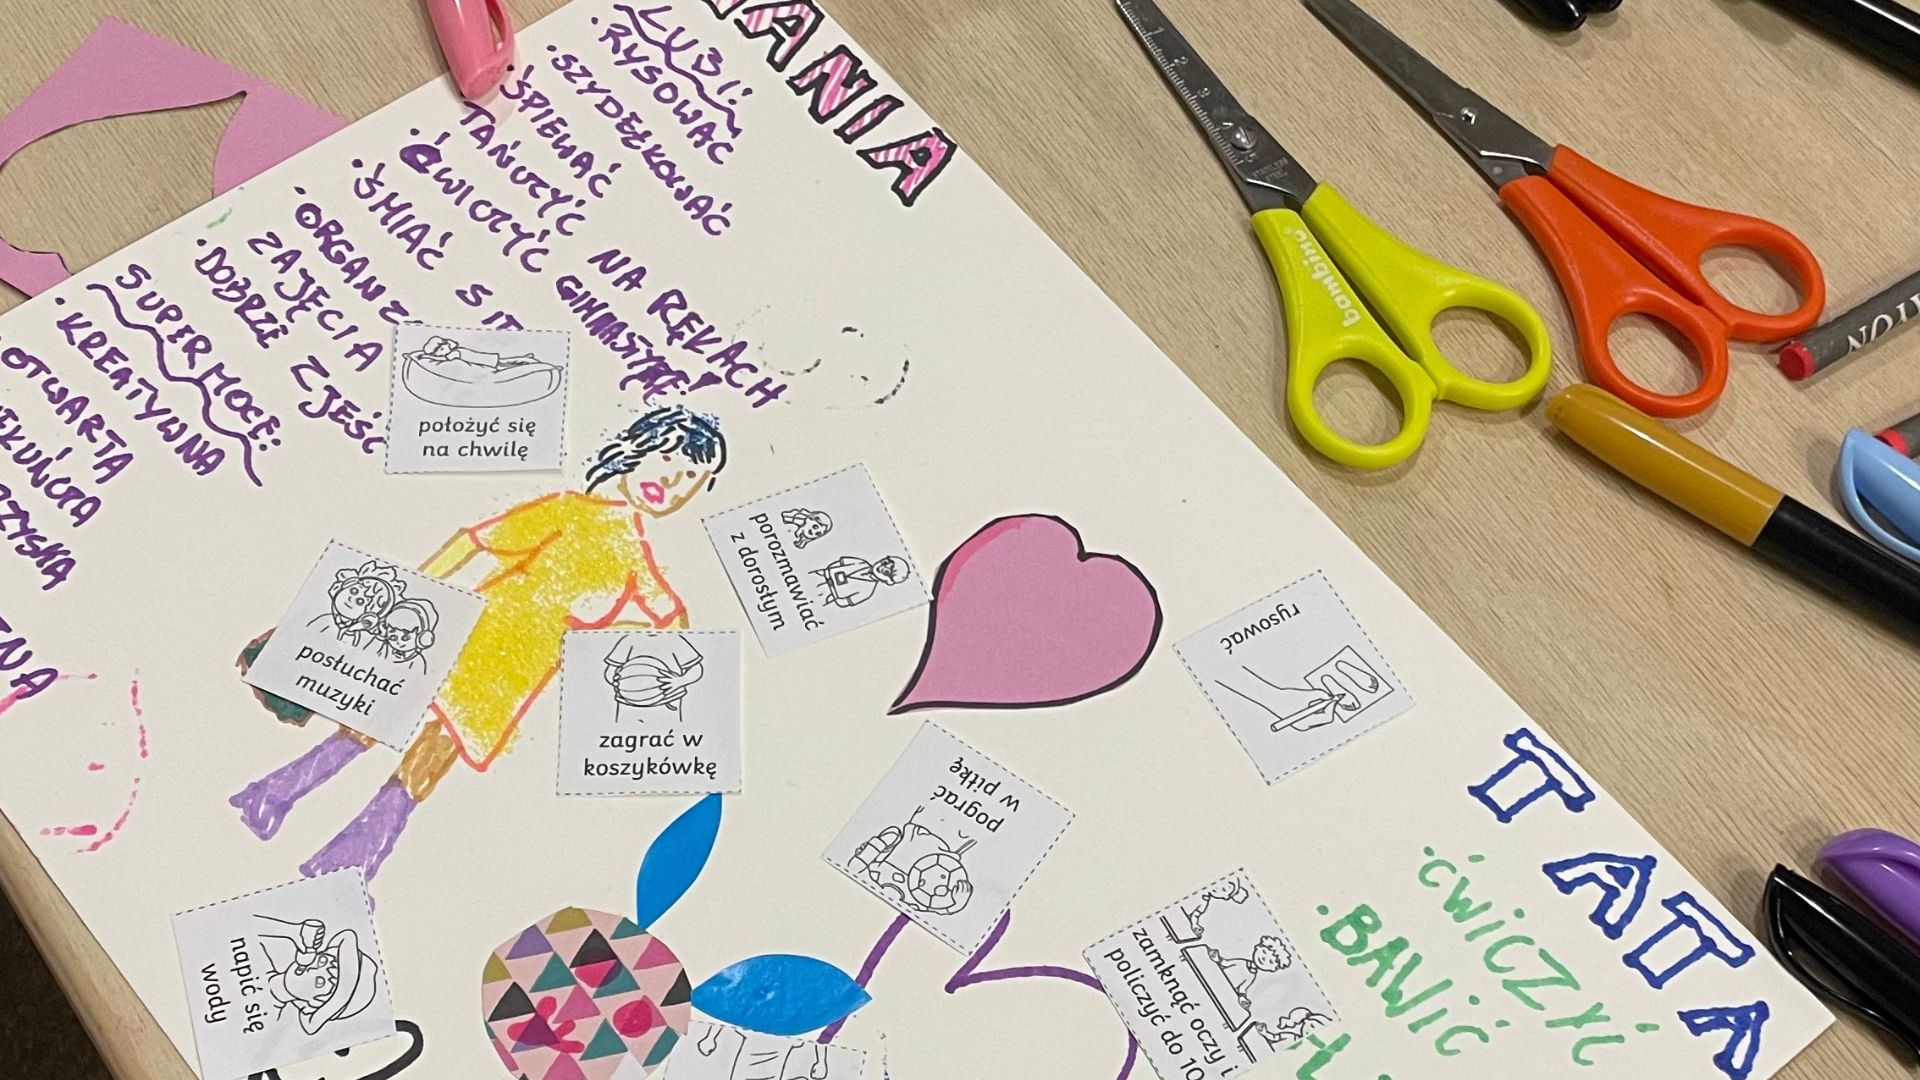 ANIA
LUBI:
· RYSOWAĆ
· SZYDEŁKOWAĆ
· ŚPIEWAĆ
TAŃCZYĆ NA RĘKACH
· ĆWICZYĆ GIMNASTYKĘ!
· ŚMIAĆ
· ORGANIZ
ZAJĘCIA
· DOBRZE ZJEŚĆ
SUPERMOCE:
· KREATYWNA
· OTWARTA
położyć się
na chwilę
porozmawiać
z dorosłym
posłuchać
muzyki
zagrać w
koszykówkę
rysować
pograć
w piłkę
napić się
wody
zamknąć oczy i
policzyć do 10
TATA
· ĆWICZYĆ
· BAWIĆ
bambino